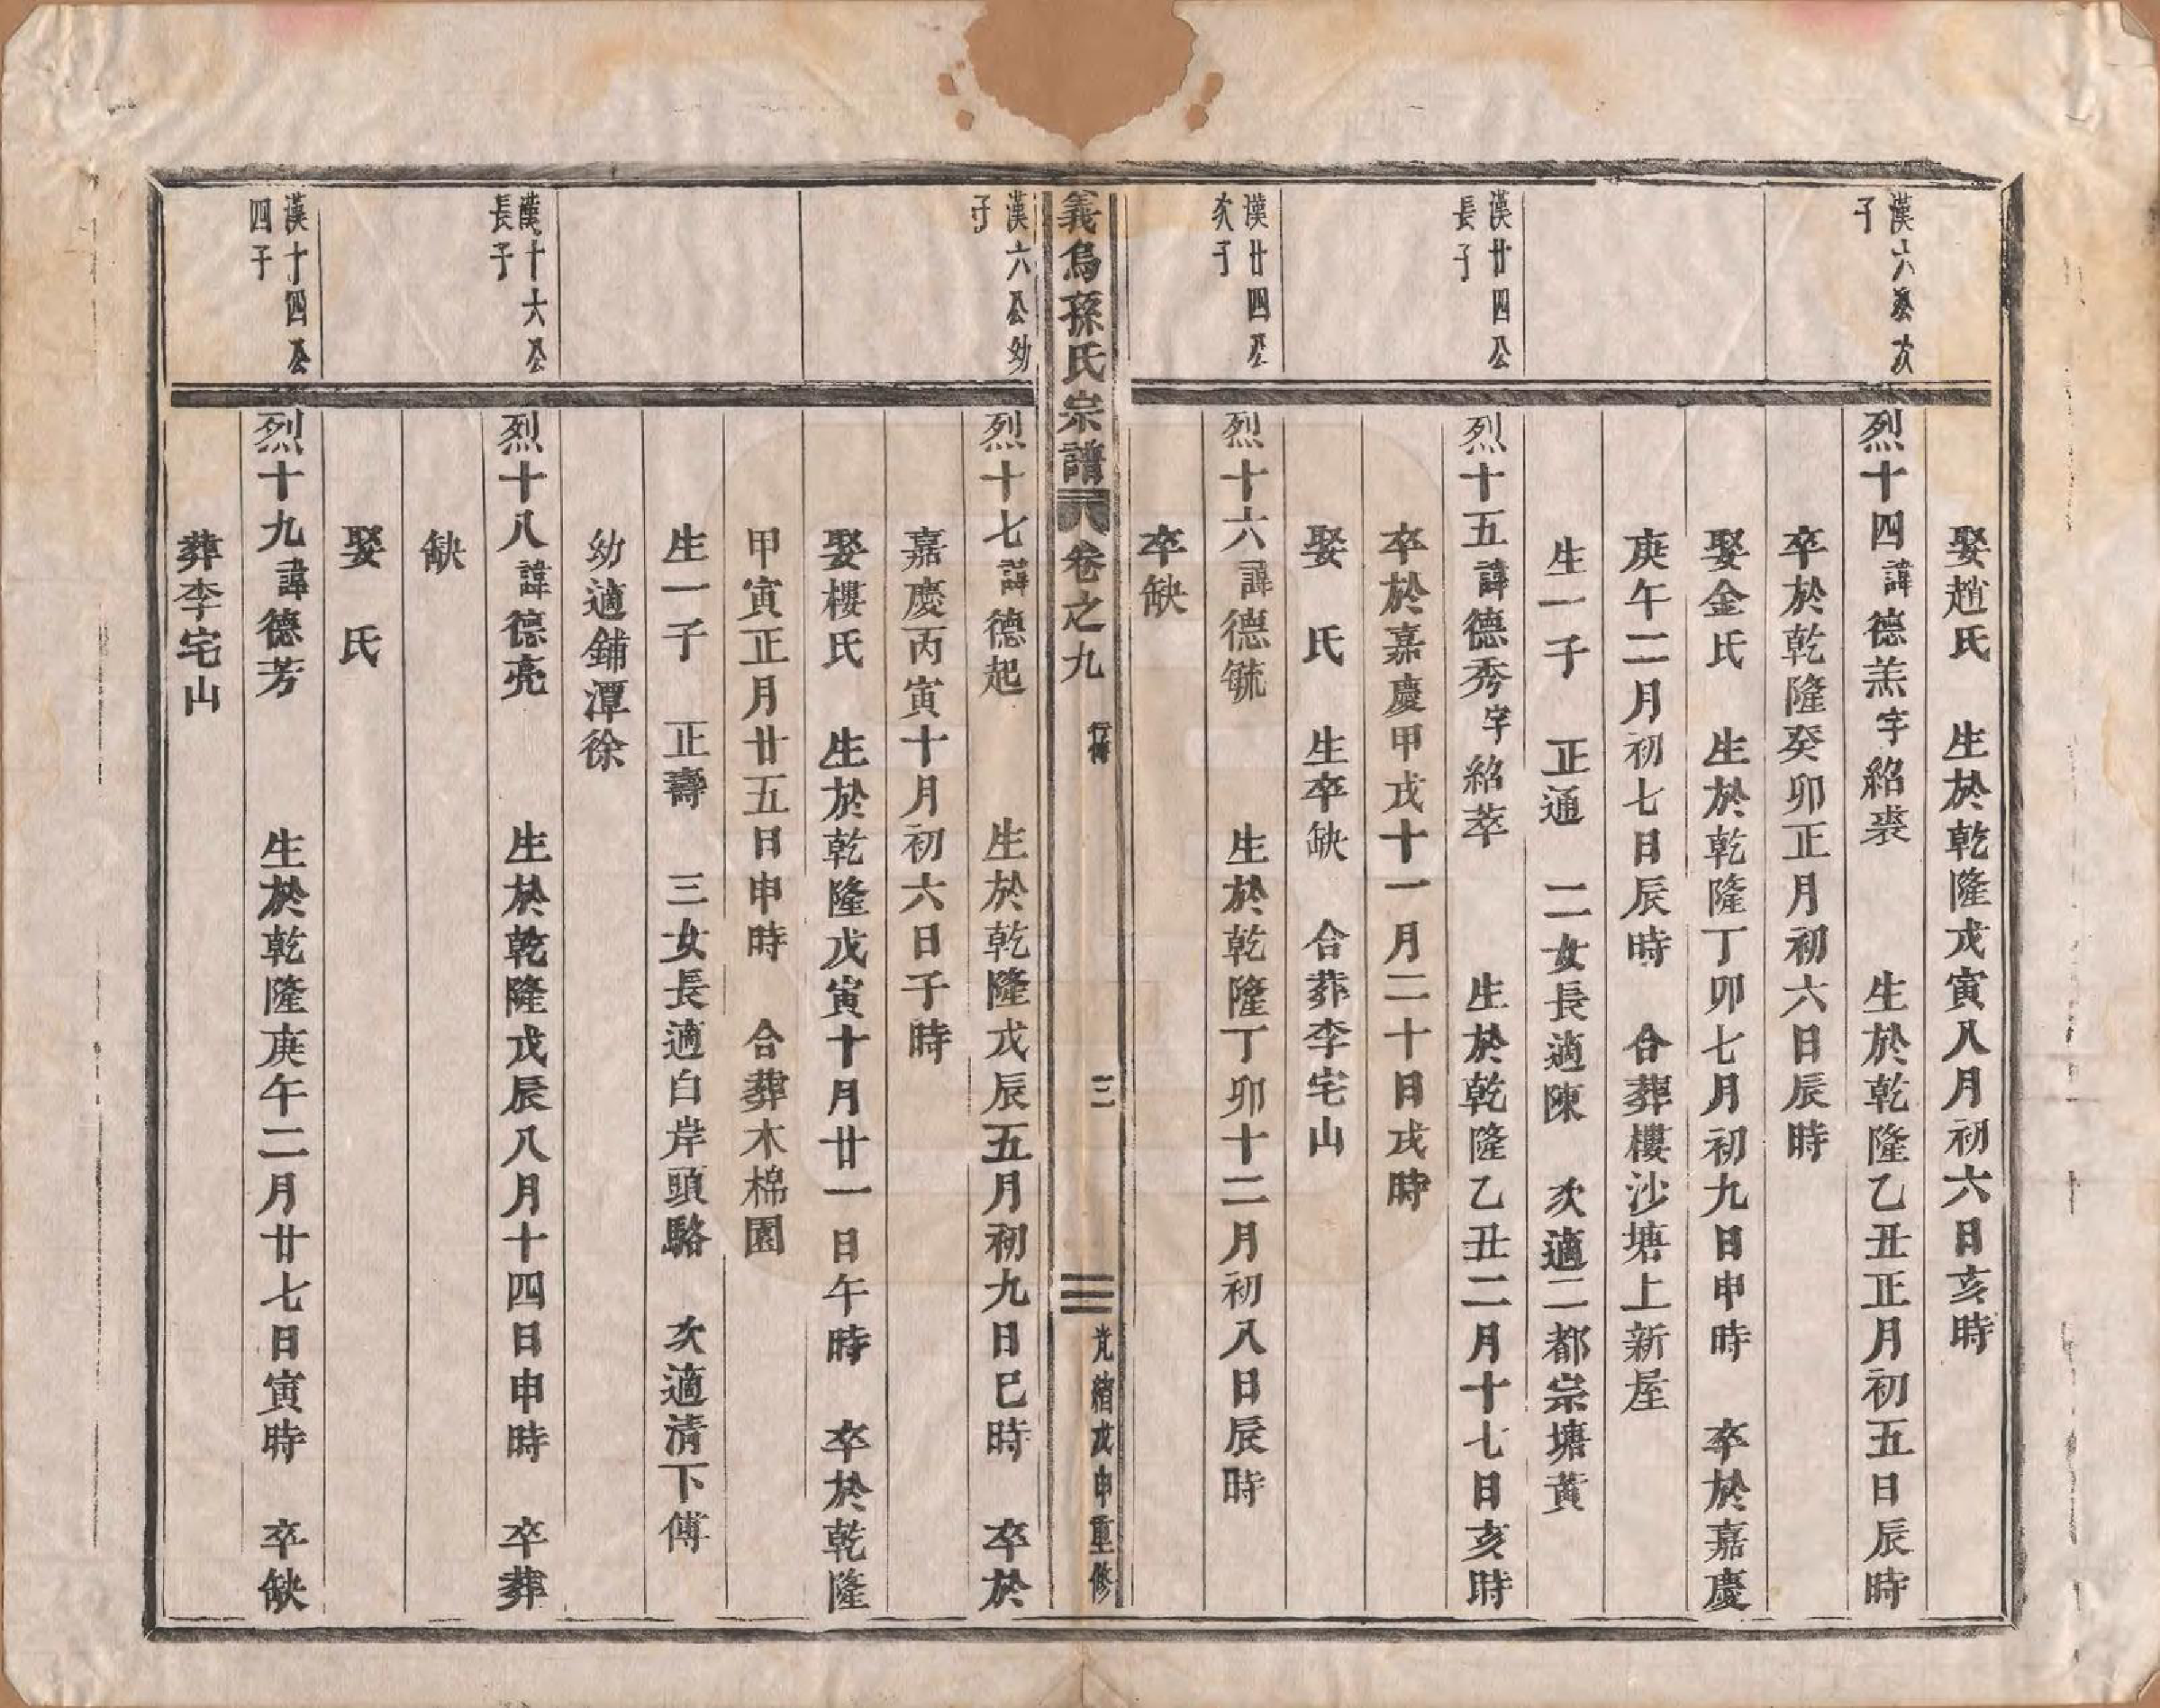 娶趙氏　生於乾隆戊寅八月初六日亥時
漢六公次子
烈十四諱德羔字紹裘　生於乾隆乙丑正月初五日辰時
卒於乾隆癸卯正月初六日辰時
娶金氏　生於乾隆丁卯七月初九日申時　卒於嘉慶
庚午二月初七日辰時　合葬樓沙塘上新屋
生一子　正通　二女長適陳　次適二都崇塘黃
漢廿四公長子
烈十五諱德秀字紹萃　生於乾隆乙丑二月十七日亥時
卒於嘉慶甲戌十一月二十日戌時
娶　氏　生卒缺　合葬李宅山
漢廿四公次子
烈十六諱德毓　生於乾隆丁卯十二月初八日辰時
卒缺
義烏孫氏宗譜　卷之九　行傳　三　光緒戊申重修
漢六公幼子
烈十七諱德起　生於乾隆戊辰五月初九日巳時　卒於
嘉慶丙寅十月初六日子時
娶樓氏　生於乾隆戊寅十月廿一日午時　卒於乾隆
甲寅正月廿五日申時　合葬木棉園
生一子　正壽　三女長適白岸頭駱　次適清下傅
幼適鋪潭徐
漢十六公長子
烈十八諱德亮　生於乾隆戊辰八月十四日申時　卒葬
缺
娶　氏
漢十四公四子
烈十九諱德芳　生於乾隆庚午二月廿七日寅時　卒缺
葬李宅山